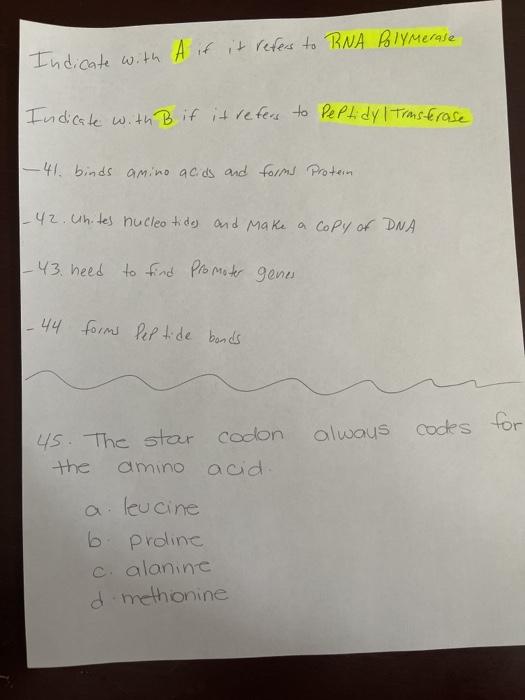 Indicate with A if it refers to RNA Polymerase
Indicate with B if it refers to Peptidyl Transferase
- 41. binds amino acids and forms Protein
- 42. Unites nucleotides and Make a Copy of DNA
- 43. need to find Promoter genes
- 44 forms Peptide bonds
45. The star codon always codes for
the amino acid.
a. leucine
b. proline
c. alanine
d. methionine